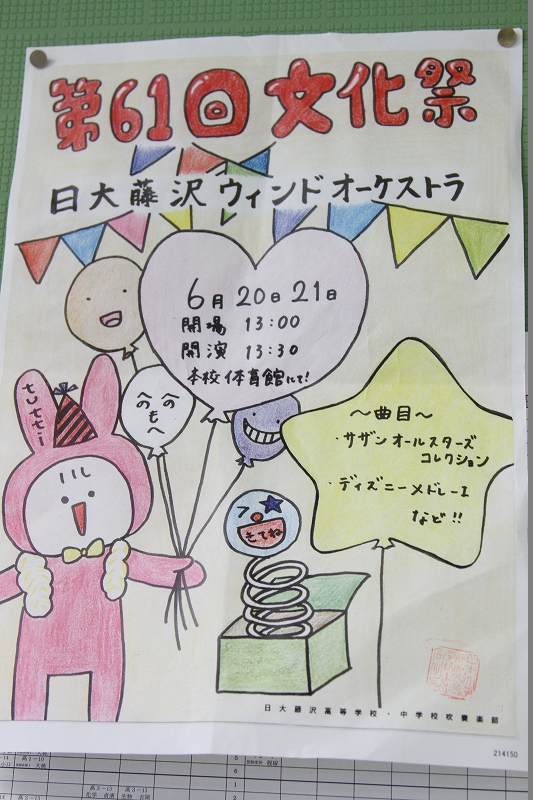 第61回文化祭
日大藤沢ウィンドオーケストラ
6月20日21日
開場 13:00
開演 13:30
本校体育館にて!
tutti
へのへの
もへ
～曲目～
・サザンオールスターズ
コレクション
・ディズニーメドレーⅠ
など!!
きてね
日大藤沢高等学校・中学校吹奏楽部
214150
高1-10
高3-13 高3-11
5
6
1
2